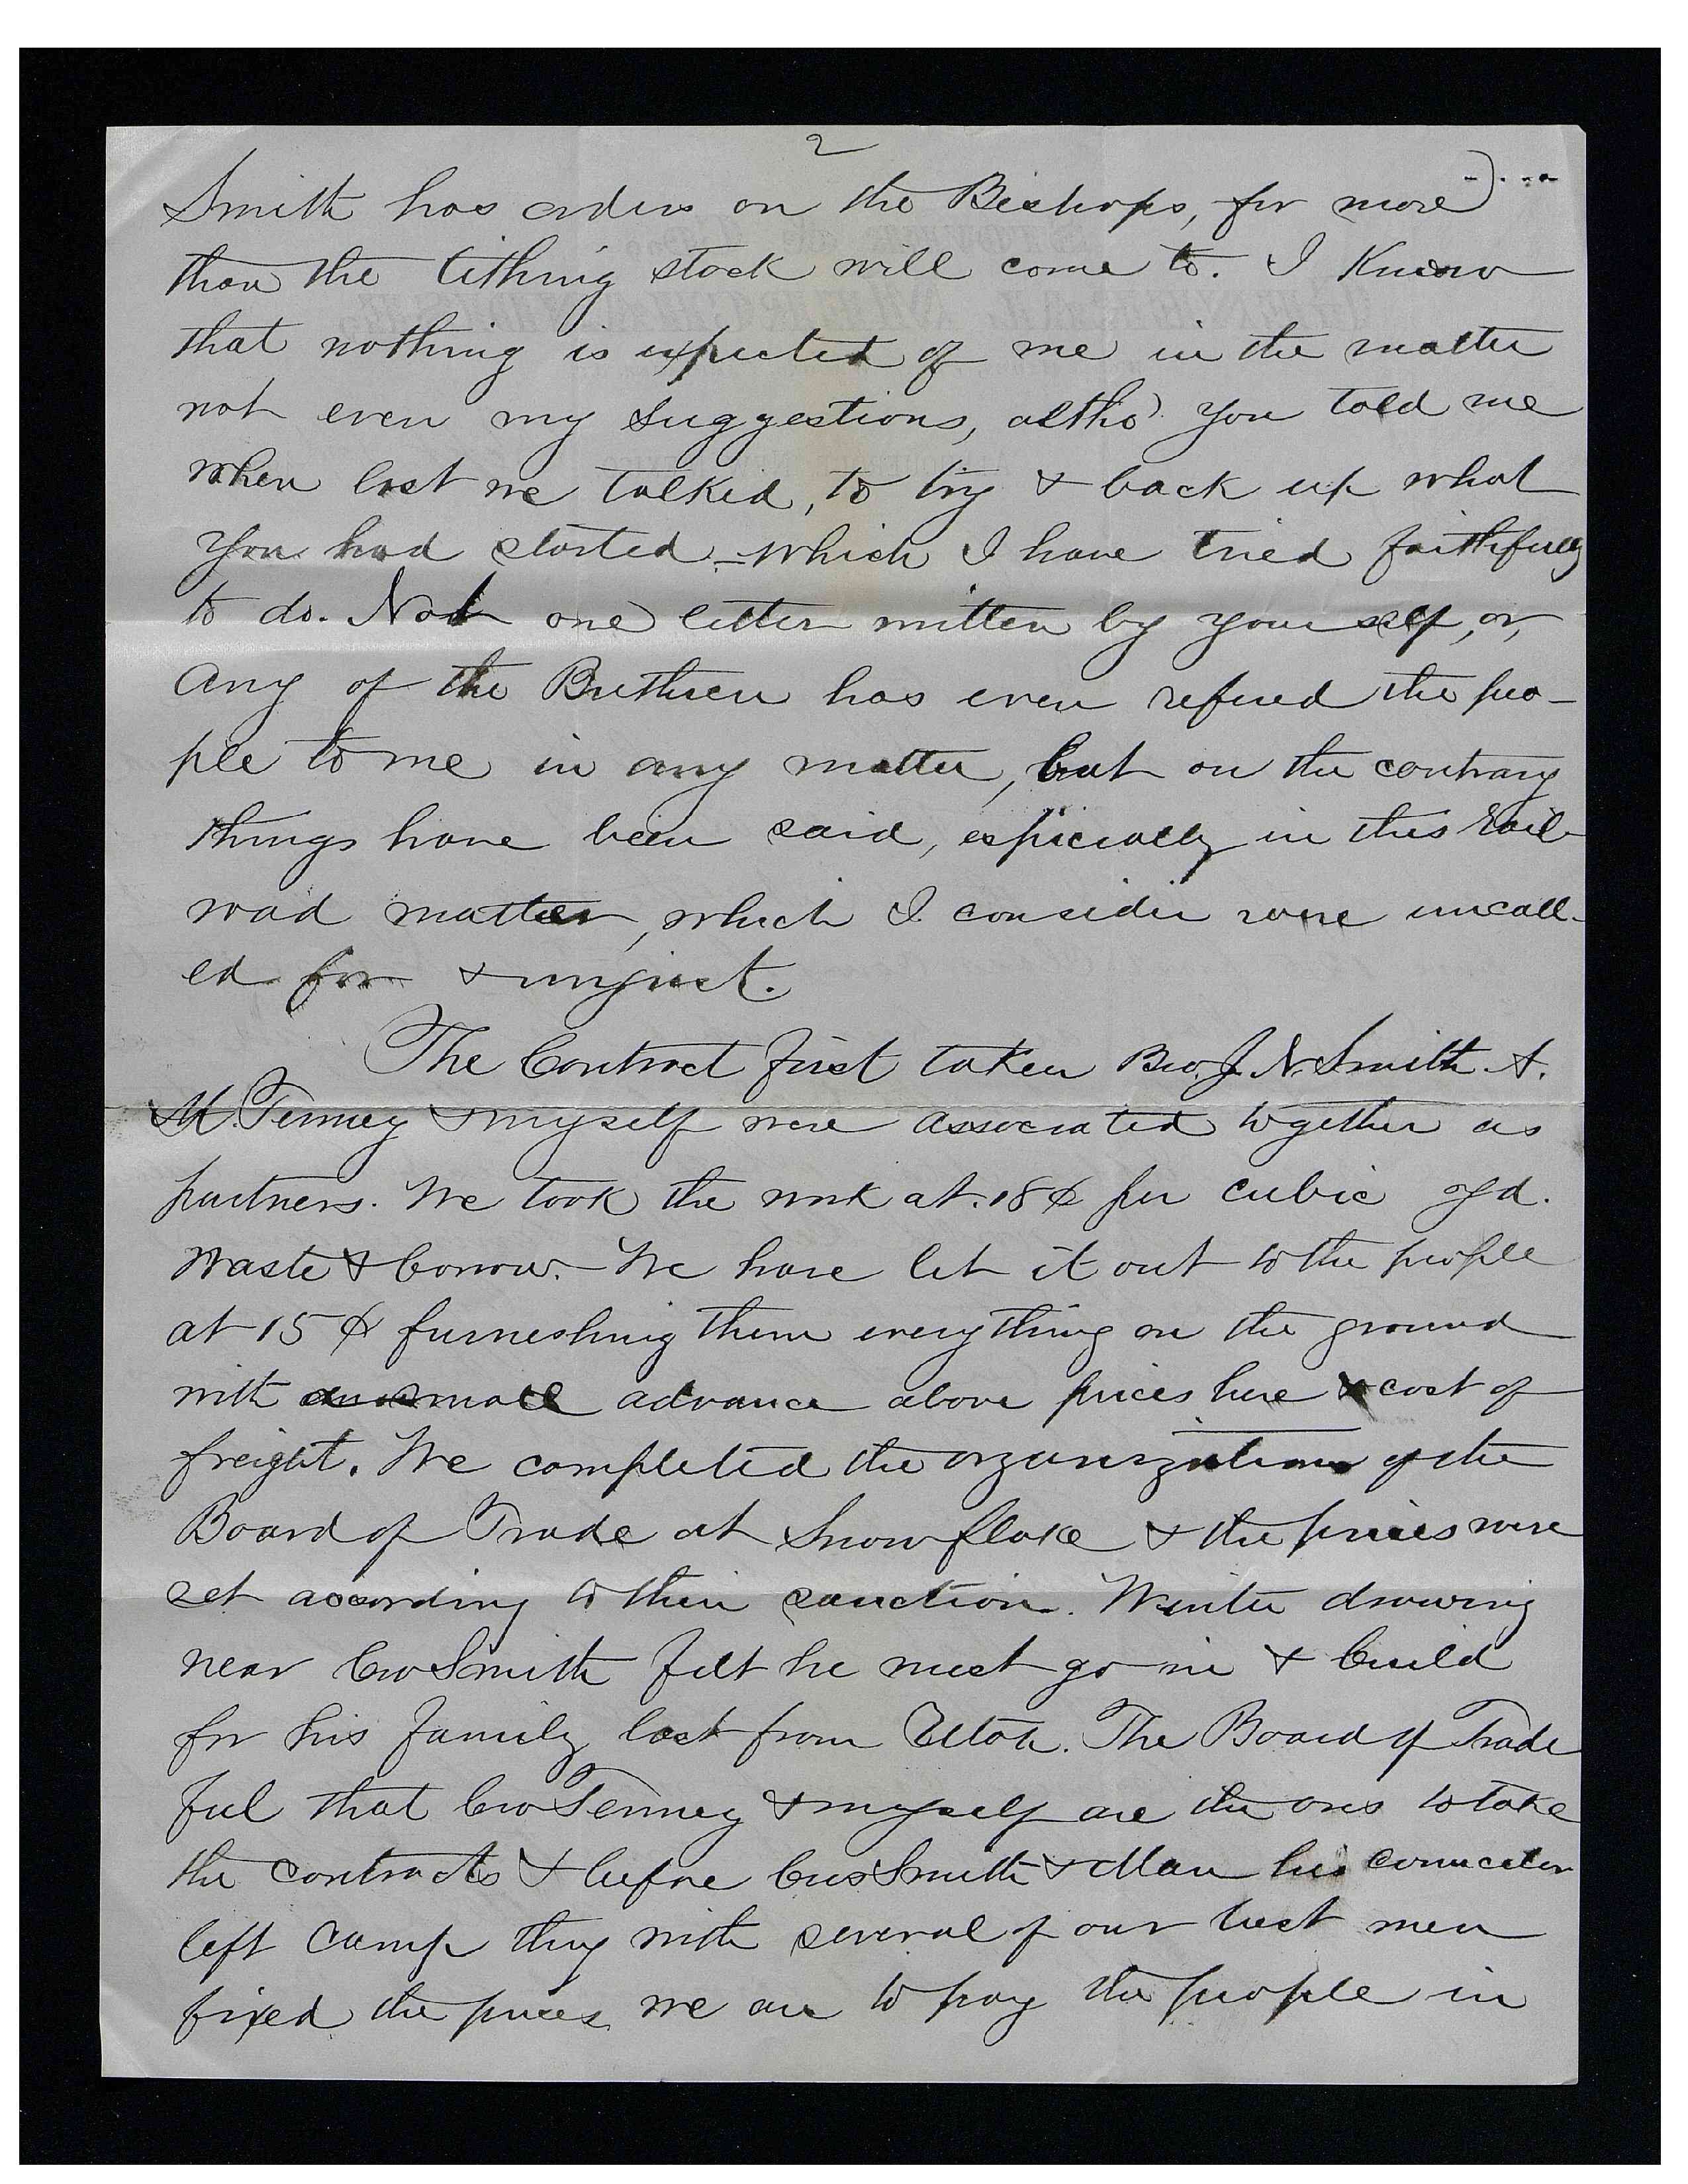 2
Smith has orders on the Bishops, for more
than the tithing stock will come to. I Know
that nothing is expected of me in the matter
not even my suggestions, altho' you told me
when last we talked, to try & back up what
you had started - which I have tried faithfully
to do. Not one letter written by yourself, or,
any of the Brethren has even refered the peo-
ple to me in any matter, but on the contrary
things have been said, especially in this Rail-
road matter, which I consider were uncall-
ed for & unjust.
The Contract first taken Bro. J. N. Smith A.
M. Tenney & myself were associated together as
partners. We took the work at .18¢ per cubic yd.
Waste & borrow. - We have let it out to the people
at 15¢ furnishing them everything on the ground
with small advance above prices here & cost of
freight. We completed the organization of the
Board of Trade at Snowflake & the prices were
set according to their sanction. Winter drawing
near bro Smith felt he must go in & build
for his family last from Utah. The Board of Trade
feel that bro Tenney & myself are the ones to take
the contracts & before bro Smith & his
left camp they with several of our best men
fixed the prices we are to pay the people in